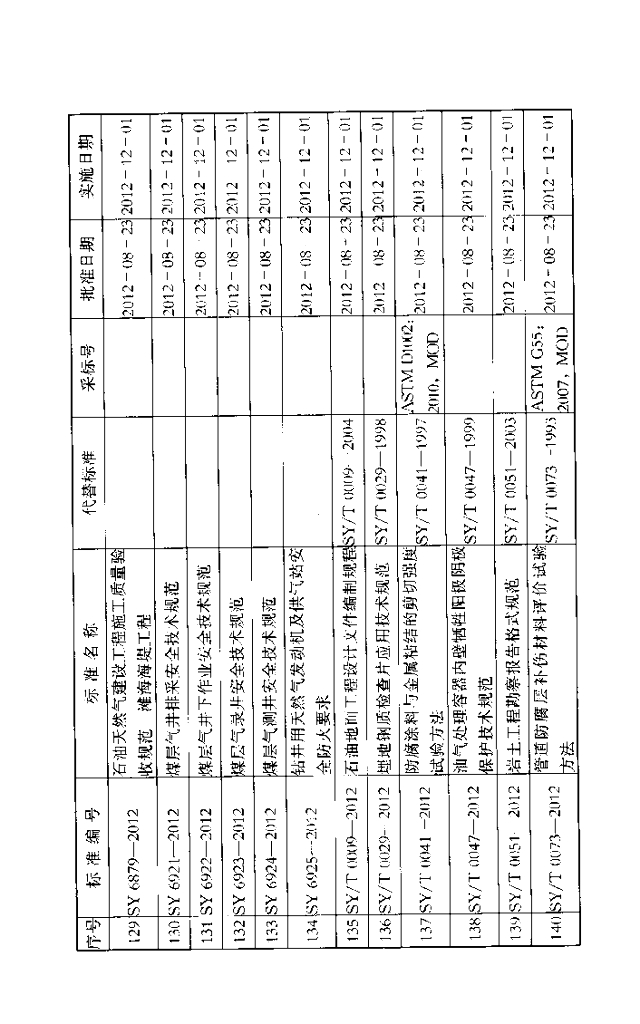 序号 标准编号 标准名称 代替标准 采标号 批准日期 实施日期
129 SY 6879—2012 石油天然气建设工程施工质量验 2012-08-23 2012-12-01
收规范 滩海海堤工程
130 SY 6921—2012 煤层气井排采安全技术规范 2012-08-23 2012-12-01
131 SY 6922—2012 煤层气井下作业安全技术规范 2012-08-23 2012-12-01
132 SY 6923—2012 煤层气录井安全技术规范 2012-08-23 2012-12-01
133 SY 6924—2012 煤层气测井安全技术规范 2012-08-23 2012-12-01
134 SY 6925—2012 钻井用天然气发动机及供气站安 2012-08-23 2012-12-01
全防火要求
135 SY/T 0009—2012 石油地面工程设计文件编制规程 SY/T 0009—2004 2012-08-23 2012-12-01
136 SY/T 0029—2012 埋地钢质检查片应用技术规范 SY/T 0029—1998 2012-08-23 2012-12-01
137 SY/T 0041—2012 防腐涂料与金属粘结的剪切强度 SY/T 0041—1997 ASTM D1002: 2012-08-23 2012-12-01
试验方法 2010, MOD
138 SY/T 0047—2012 油气处理容器内壁牺牲阳极阴极 SY/T 0047—1999 2012-08-23 2012-12-01
保护技术规范
139 SY/T 0051—2012 岩土工程勘察报告格式规范 SY/T 0051—2003 2012-08-23 2012-12-01
140 SY/T 0073—2012 管道防腐层补伤材料评价试验 SY/T 0073—1993 ASTM G55: 2012-08-23 2012-12-01
方法 2007, MOD